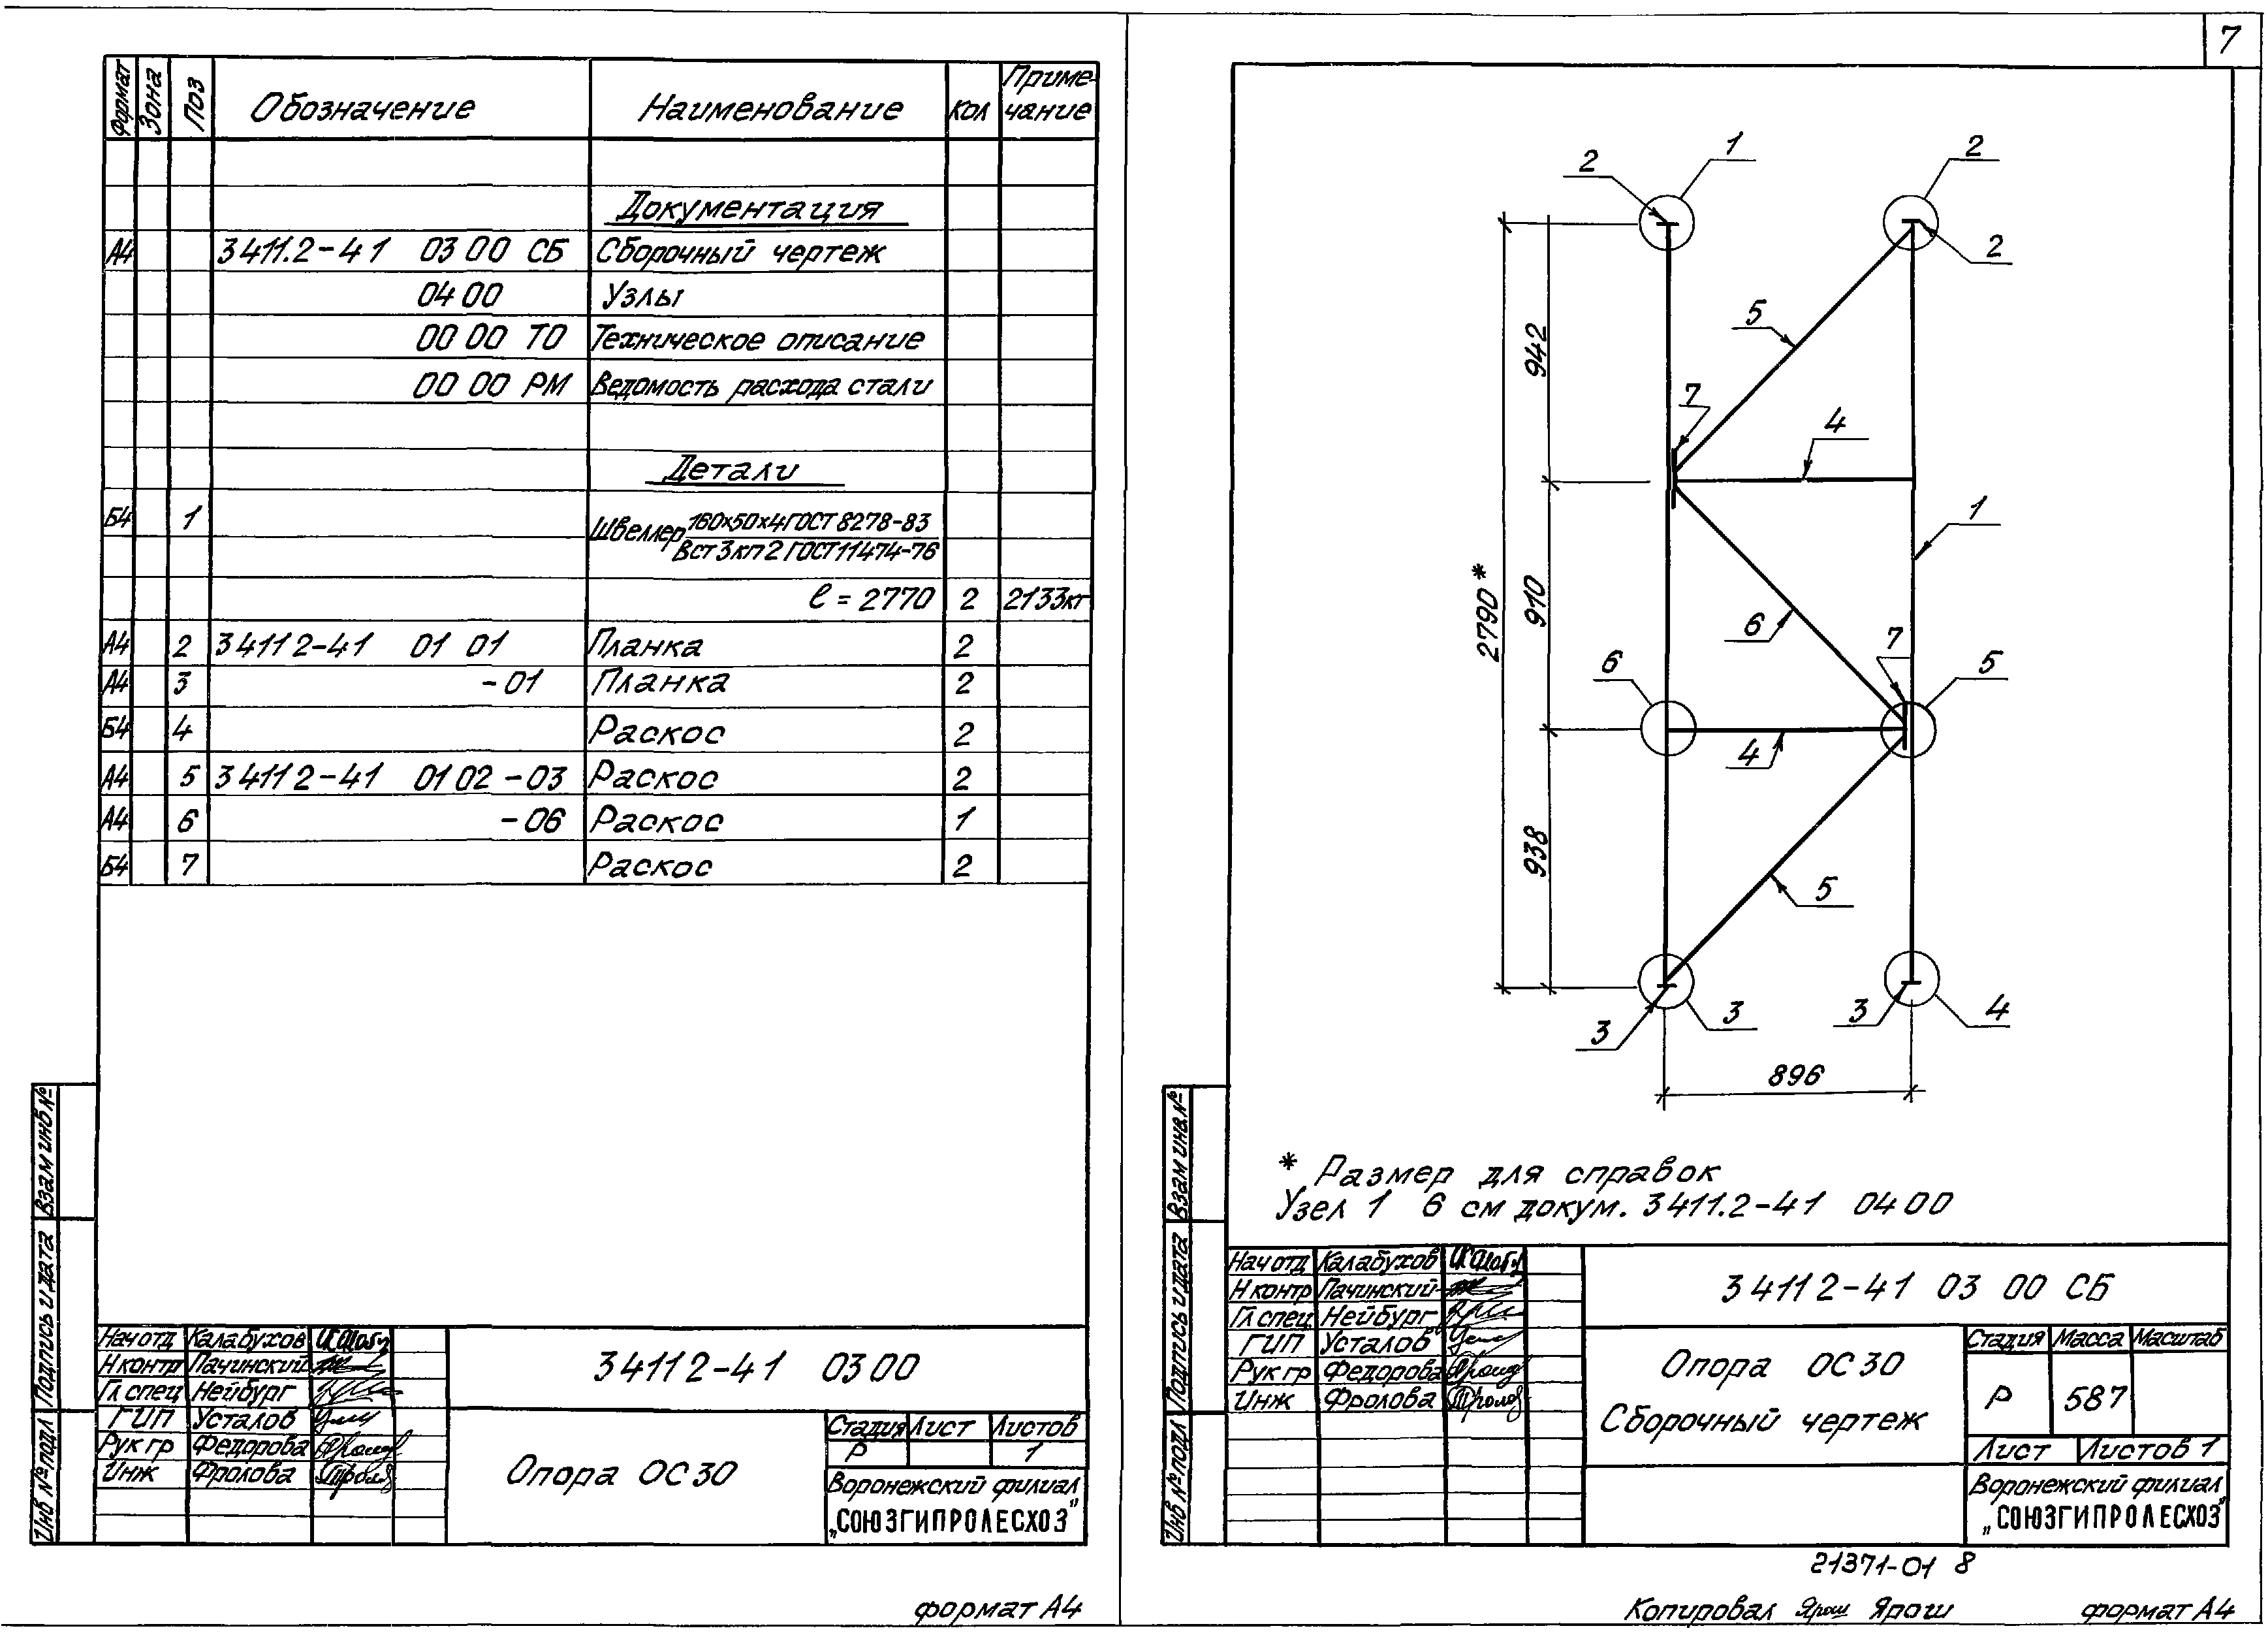 7
Формат Зона Поз Обозначение Наименование Кол Приме-чание
Документация
А4 3411.2-41 03 00 СБ Сборочный чертеж
04 00 Узлы
00 00 ТО Техническое описание
00 00 РМ Ведомость расхода стали
Детали
Б4 1 Швеллер 160х50х4 ГОСТ 8278-83
Вст 3 кп 2 ГОСТ 11474-76
ℓ = 2770 2 2133кг
А4 2 3 411 2-41 01 01 Планка 2
А4 3 -01 Планка 2
Б4 4 Раскос 2
А4 5 3 411 2-41 01 02 -03 Раскос 2
А4 6 -06 Раскос 1
Б4 7 Раскос 2
Взам инв №
Подпись и дата
Инв № подл
Нач отд Калабухов
Н контр Пачинский
Гл спец Нейбург
ГИП Усталов
Рук гр Федорова
Инж Фролова
3 411 2-41 03 00
Опора ОС 30
Стадия Лист Листов
Р 1
Воронежский филиал
„СОЮЗГИПРОЛЕСХОЗ"
формат А4
2 1 2
2
5
942
7
4
1
2790*
910
6
7
6 5
4
938
5
3 3 3 4
896
* Размер для справок
Узел 1 6 см докум. 3 411.2-41 04 00
Взам инв №
Подпись и дата
Инв № подл
Нач отд Калабухов
Н контр Пачинский
Гл спец Нейбург
ГИП Усталов
Рук гр Федорова
Инж Фролова
3 411 2-41 03 00 СБ
Опора ОС 30
Сборочный чертеж
Стадия Масса Масштаб
Р 587
Лист Листов 1
Воронежский филиал
„СОЮЗГИПРОЛЕСХОЗ"
21371-01 8
Копировал Ярош Ярош формат А4